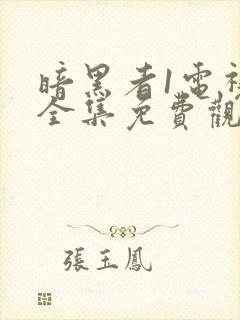 暗黑者1電視
全集免費觀
張玉鳳